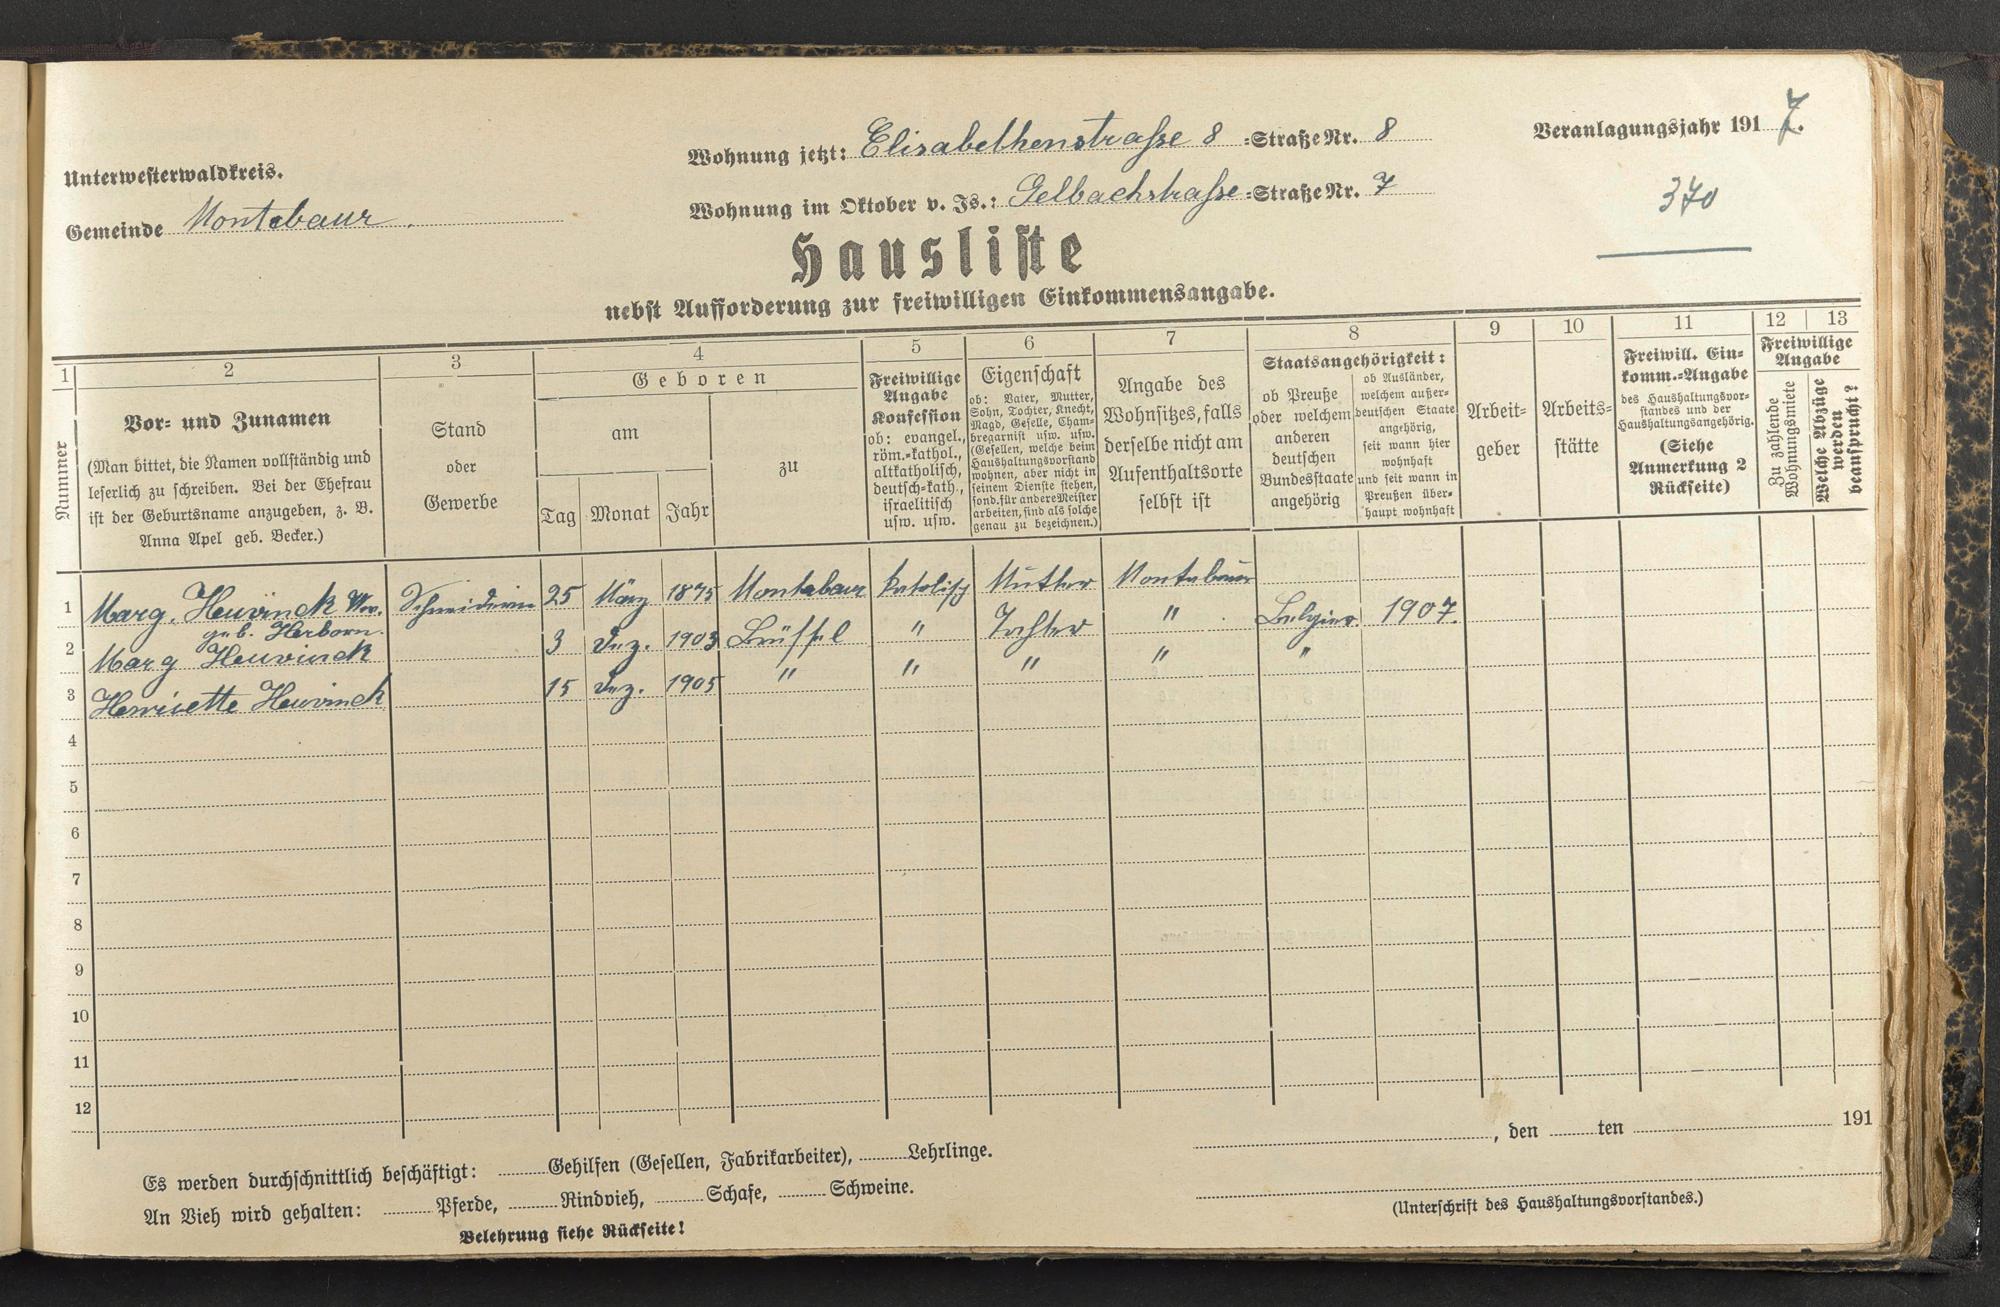 Unterwesterwaldkreis.
Gemeinde Montabaur.
Wohnung jetzt: Elisabethenstraße 8 =Straße Nr. 8
Wohnung im Oktober v. Js.: Gelbachstraße =Straße Nr. 7
Veranlagungsjahr 1917.
370
Hausliste
nebst Aufforderung zur freiwilligen Einkommensangabe.
1 2 3 4 5 6 7 8 9 10 11 12 13
Nummer
Vor- und Zunamen
(Man bittet, die Namen vollständig und
leserlich zu schreiben. Bei der Ehefrau
ist der Geburtsname anzugeben, z. B.
Anna Apel geb. Becker.)
Stand
oder
Gewerbe
Geboren
am
Tag Monat Jahr
zu
Freiwillige
Angabe
Konfession
ob: evangel.,
röm.-kathol.,
altkatholisch,
deutsch-kath.,
israelitisch
usw. usw.
Eigenschaft
ob: Vater, Mutter,
Sohn, Tochter, Knecht,
Magd, Geselle, Cham-
bregarnist usw. usw.
(Gesellen, welche beim
Haushaltungsvorstand
wohnen, aber nicht in
seinem Dienste stehen,
sond. für andere Meister
arbeiten, sind als solche
genau zu bezeichnen.)
Angabe des
Wohnsitzes, falls
derselbe nicht am
Aufenthaltsorte
selbst ist
Staatsangehörigkeit:
ob Preuße
oder welchem
anderen
deutschen
Bundesstaate
angehörig
ob Ausländer,
welchem außer-
deutschen Staate
angehörig,
seit wann hier
wohnhaft
und seit wann in
Preußen über-
haupt wohnhaft
Arbeit-
geber
Arbeits-
stätte
Freiwill. Ein-
komm.-Angabe
des Haushaltungsvor-
standes und der
Haushaltungsangehörig.
(Siehe
Anmerkung 2
Rückseite)
Freiwillige
Angabe
Zu zahlende
Wohnungsmiete
Welche Abzüge
werden
beansprucht?
1 Marg. Heuvinck Ww. Schneiderin 25 März 1875 Montabaur katolisch Mutter Montabaur
geb. Herborn.
2 Marg Heuvinck 3 Dez. 1903 Brüssel " Tochter " Belgier 1907.
3 Henriette Heuvinck 15 Dez. 1905 " " " " "
4
5
6
7
8
9
10
11
12
Es werden durchschnittlich beschäftigt: Gehilfen (Gesellen, Fabrikarbeiter), Lehrlinge.
An Vieh wird gehalten: Pferde, Rindvieh, Schafe, Schweine.
Belehrung siehe Rückseite!
, den ten 191
(Unterschrift des Haushaltungsvorstandes.)